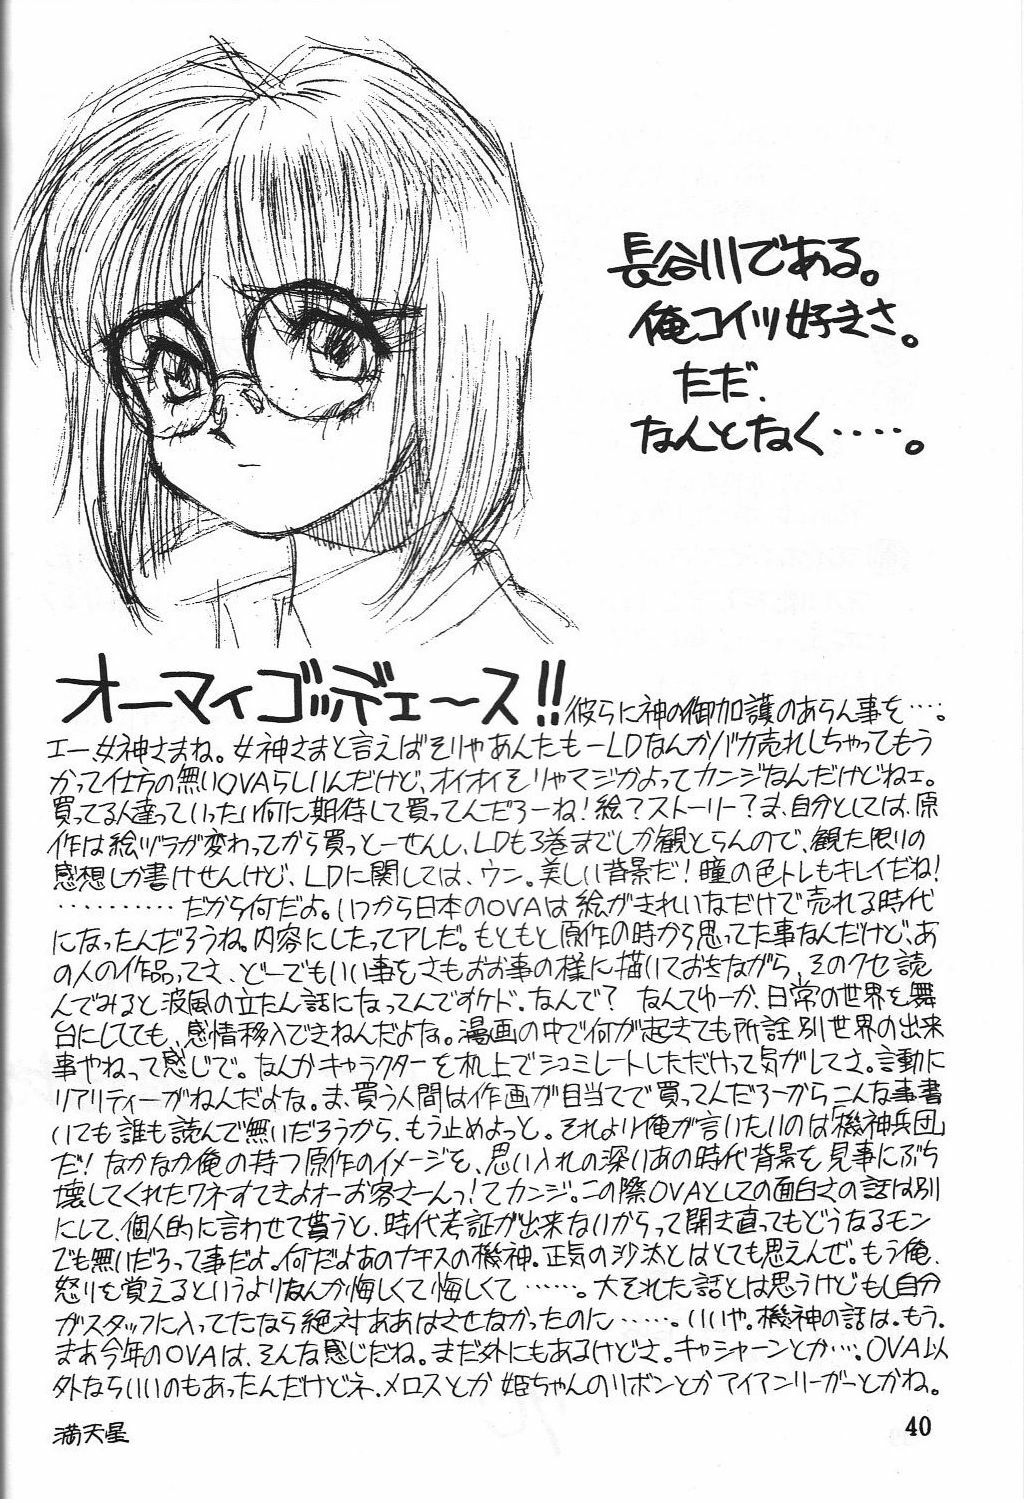 長谷川である。
俺コイツ好きさ。
ただ、
なんとなく・・・・。
オーマイゴッデェ～ス!! 彼らに神の御加護のあらん事を・・・・。
エー、女神さまね。女神さまと言えばそりゃあんたもーLDなんかバカ売れしちゃってもう
かって仕方の無いOVAらしいんだけど、オイオイそりゃマジかよってカンジなんだけどねェ。
買ってる人達っていったい何に期待して買ってんだろーね!絵?ストーリー?ま、自分としては、原
作は絵ヅラが変わってから買っとーせんし、LDも3巻までしか観とらんので、観た限りの
感想しか書けせんけど、LDに関しては、ウン。美しい背景だ!瞳の色トレもキレイだね!
・・・・・・・・・・だから何だよ。いつから日本のOVAは絵がきれいなだけで売れる時代
になったんだろうね。内容にしたってアレだ。もともと原作の時から思ってた事なんだけど、あ
の人の作品ってさ、どーでもいい事をさもおお事の様に描いておきながら、そのクセ読
んでみると波風の立たん話になってんですケド。なんで? なんてゆーか、日常の世界を舞
台にしてても、感情移入できねんだよな。漫画の中で何が起きても所詮別世界の出来
事やねって感じで。なんかキャラクターを机上でシュミレートしただけって気がしてさ。言動に
リアリティーがねんだよな。ま、買う人間は作画が目当てで買ってんだろーからこんな事書
いても誰も読んで無いだろうから、もう止めよっと。それより俺が言いたいのは「機神兵団」
だ!なかなか俺の持つ原作のイメージを、思い入れの深いあの時代背景を見事にぶち
壊してくれたワネすてきよオーお客さーんっ!てカンジ。この際OVAとしての面白さの話は別
にして、個人的に言わせて貰うと、時代考証が出来ないからって開き直ってもどうなるモン
でも無いだろって事だよ。何だよあのナチスの機神。正気の沙汰とはとても思えんぜ。もう俺、
怒りを覚えるというよりなんか悔しくて悔しくて・・・・・・。大それた話とは思うけどもし自分
がスタッフに入ってたなら絶対ああはさせなかったのに・・・・・・。いいや。機神の話は。もう。
まあ今年のOVAは、そんな感じだね。まだ外にもあるけどさ。キャシャーンとか・・・。OVA以
外ならいいのもあったんだけどネ、メロスとか姫ちゃんのリボンとかアイアンリーガーとかね。
満天星
40